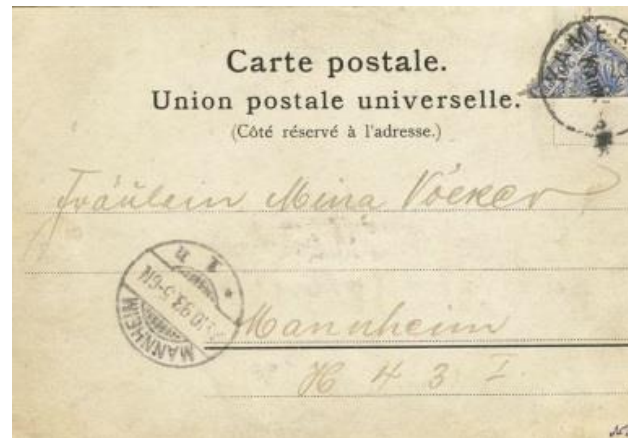 Carte postale.
Union postale universelle.
(Côté réservé à l'adresse.)
Fräulein Mina
Mannheim
H 4 3 I.
MANNHEIM
10.93.5-6N
* 1 n